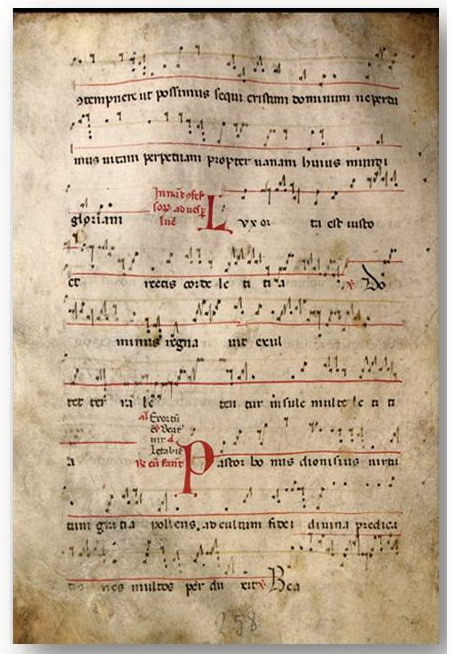 ꝯtempnere ut possimus sequi cristum dominum ne perda
mus uitam perpetuam propter uanam huius mundi
gloriam L vx or ta est iusto
et rectis corde le ti ti a ℣ Do
minus regna uit exul
tet ter ra le ten tur insule multe le ti ti
a Pastor bo nus dionisius uirtu
tum gratia pollens ad cultum fidei diuina predica
multos per du xit ℣ Bea
258